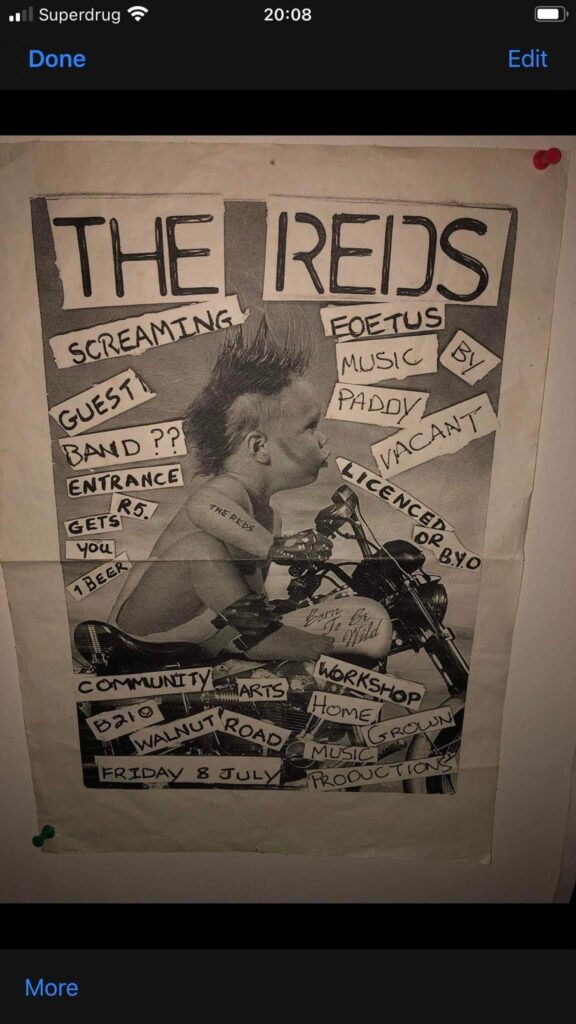 Superdrug 20:08
Done Edit
THE REDS
SCREAMING FOETUS
GUEST BAND ??
MUSIC BY
PADDY VACANT
ENTRANCE R5.
GETS YOU
1 BEER
LICENCED
OR B.Y.O
THE REDS
Born To Be Wild
COMMUNITY ARTS WORKSHOP
B210 WALNUT ROAD
HOME GROWN
MUSIC PRODUCTIONS
FRIDAY 8 JULY
More